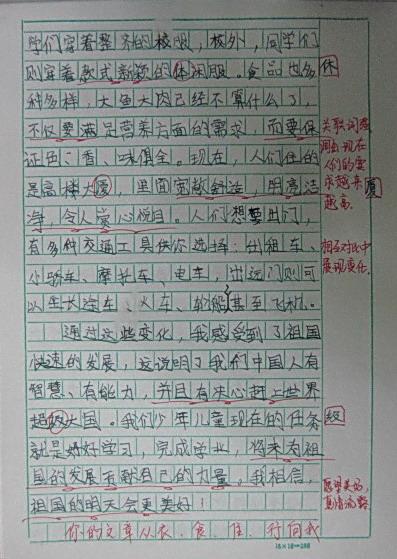 学们穿着整齐的校服，校外，同学们
则穿着款式新颖的休闲服。食品也多
休
种多样，大鱼大肉已经不算什么了，
不仅要满足营养方面的需求，而要保
关联词
证色、香、味俱全。现在，人们住的
出现在
人们的要
求越来
越高。
是高楼大厦，里面宽敞舒适，明亮洁
厦
净，令人赏心悦目。人们想要出门，
有多种交通工具供你选择：出租车、
相互对比中
展现变化。
小轿车、摩托车、电车，出远门则可
以坐长途车、火车、轮船甚至飞机。
通过这些变化，我感受到了祖国
快速的发展，这说明了我们中国人有
智慧、有能力，并且有决心赶上世界
超级大国。我们少年儿童现在的任务
级
就是好好学习，完成学业，将来为祖
国的发展贡献自己的力量。我相信，
愿望美好，
真情流露
祖国的明天会更美好！
你的文章从衣、食、住、行向我